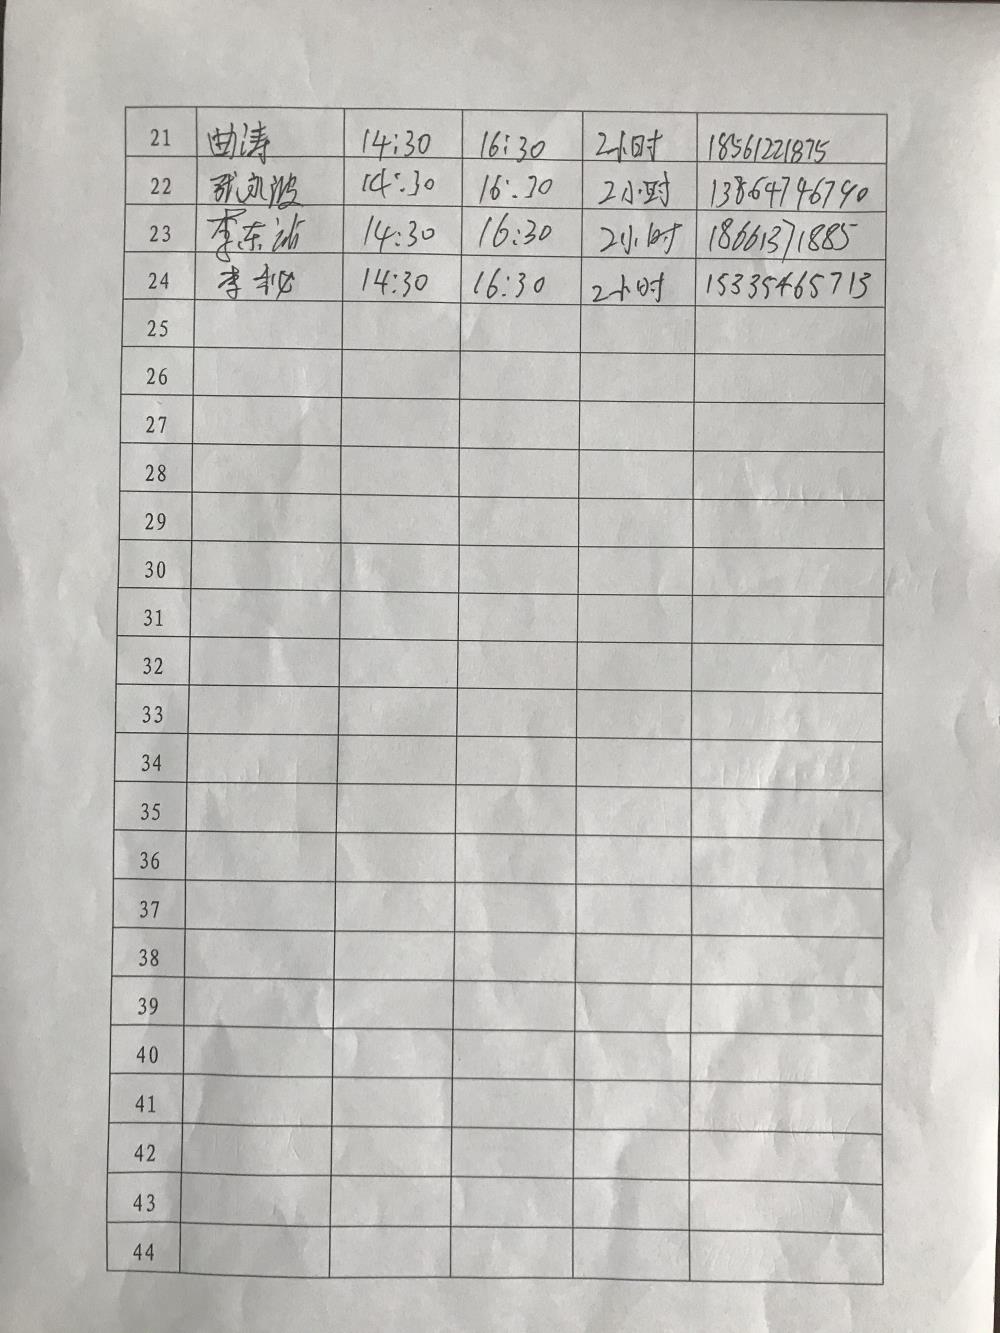 21 曲涛 14:30 16:30 2小时 18561221875
22 14:30 16:30 2小时 13864746790
23 李东 14:30 16:30 2小时 18661371885
24 李 14:30 16:30 2小时 15335465713
25
26
27
28
29
30
31
32
33
34
35
36
37
38
39
40
41
42
43
44